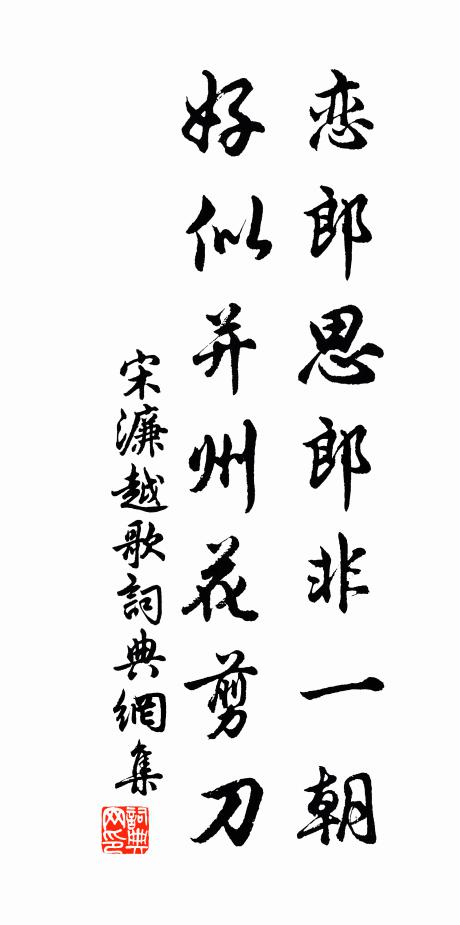 恋郎思郎非一朝
好似并州花剪刀
宋濂越歌詞典網集
詞典网印